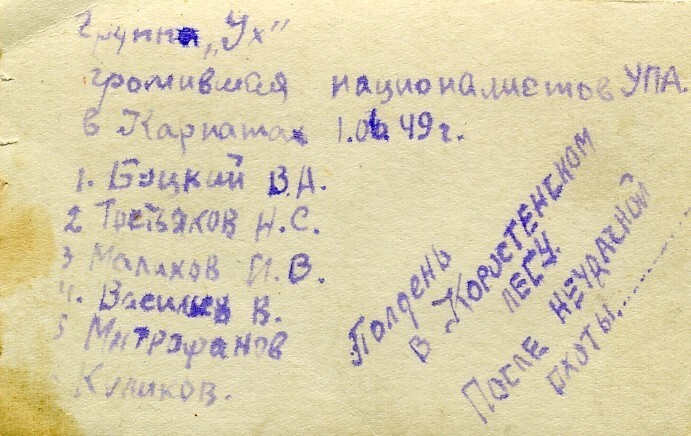 Группа „Ух"
громившая националистов УПА.
в Карпатах 1.06.49г.
1. Буцкий В.А.
2 Третьяков Н.С.
3 Малихов И.В.
4. Васильев В.
5 Митрофанов
Куликов.
Полдень
в Коростенском
лесу.
После неудачной
охоты..........